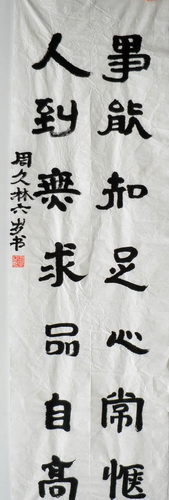 事能知足心常惬
人到无求品自高
周久林六岁书